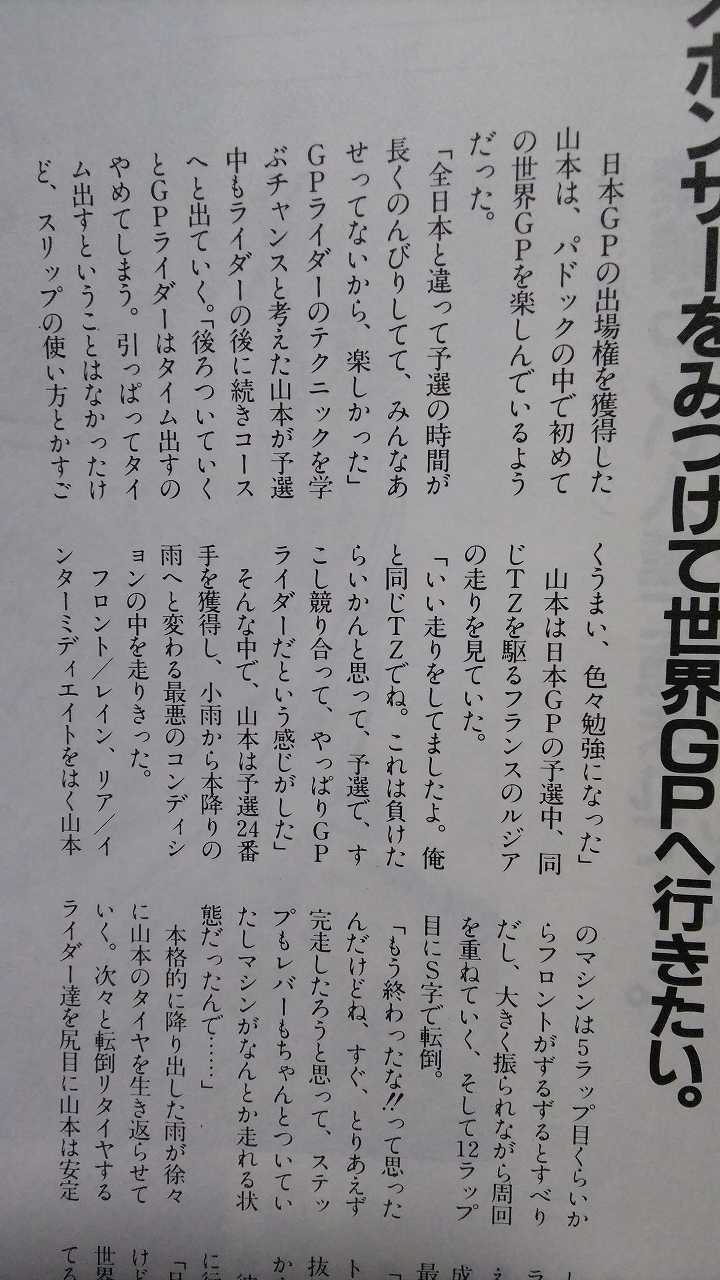 ポンサーをみつけて世界GPへ行きたい。
日本GPの出場権を獲得した
山本は、パドックの中で初めて
の世界GPを楽しんでいるよう
だった。
「全日本と違って予選の時間が
長くのんびりしてて、みんなあ
せってないから、楽しかった」
GPライダーのテクニックを学
ぶチャンスと考えた山本が予選
中もライダーの後に続きコース
へと出ていく。「後ろついていく
とGPライダーはタイム出すの
やめてしまう。引っぱってタイ
ム出すということはなかったけ
ど、スリップの使い方とかすご
くうまい、色々勉強になった」
山本は日本GPの予選中、同
じTZを駆るフランスのルジア
の走りを見ていた。
「いい走りをしてましたよ。俺
と同じTZでね。これは負けた
らいかんと思って、予選で、す
こし競り合って、やっぱりGP
ライダーだという感じがした」
そんな中で、山本は予選24番
手を獲得し、小雨から本降りの
雨へと変わる最悪のコンディシ
ョンの中を走りきった。
フロント/レイン、リア/イ
ンターミディエイトをはく山本
のマシンは5ラップ目くらいか
らフロントがずるずるとすべり
だし、大きく振られながら周回
を重ねていく、そして12ラップ
目にS字で転倒。
「もう終わったな!!って思った
んだけどね、すぐ、とりあえず
完走したろうと思って、ステッ
プもレバーもちゃんとついてい
たしマシンがなんとか走れる状
態だったんで……」
本格的に降り出した雨が徐々
に山本のタイヤを生き返らせて
いく。次々と転倒リタイヤする
ライダー達を尻目に山本は安定